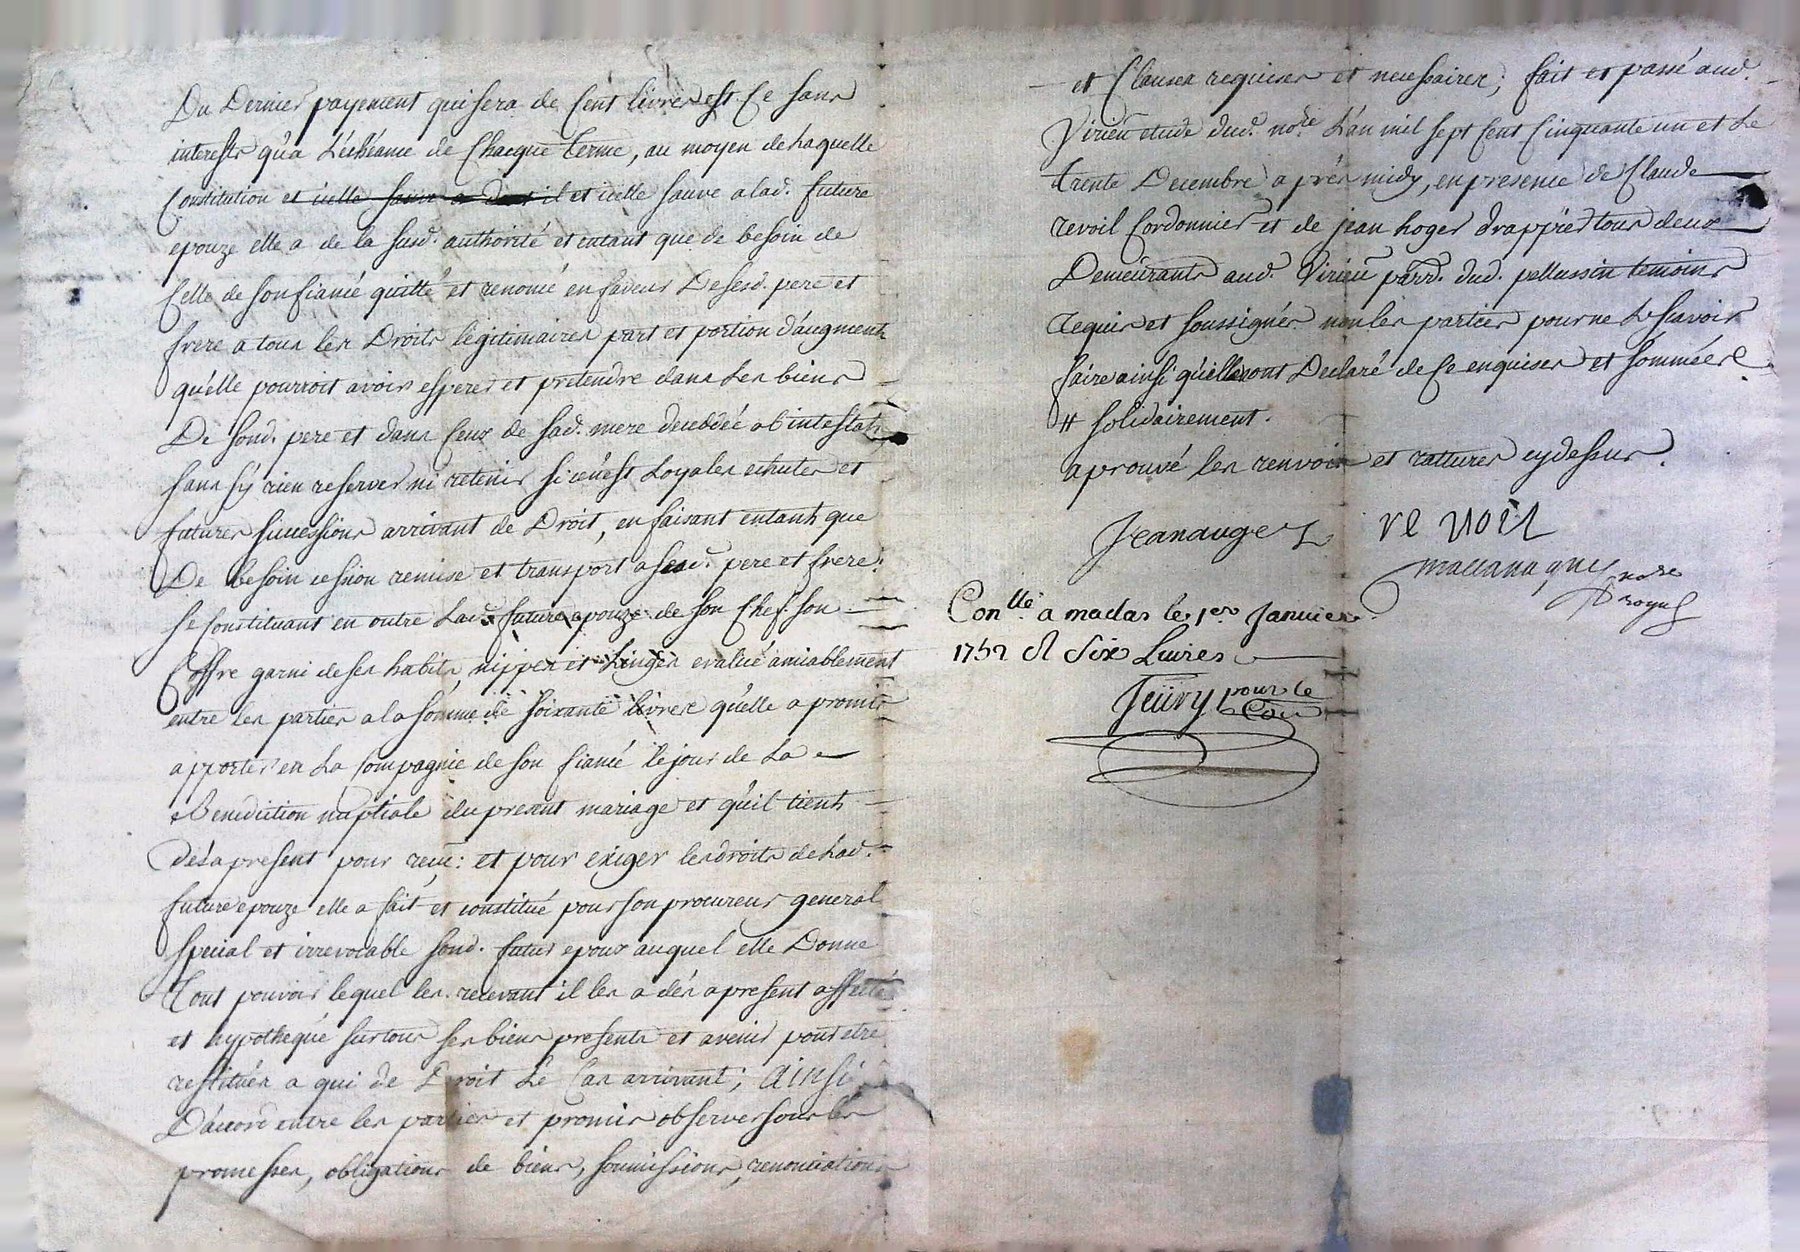 Du Dernier payement qui sera de Cent livres est Ce sans
interests qu'a L'échéance de Chacque terme, au moyen de Laquelle
Constitution et icelle sauve a d il et icelle sauve a lad. future
epouze elle a de la susd. authorité et entant que de besoin de
Celle de son fiancé quitté et renoncé en faveur De sesd. pere et
frere a tous les Droits legitimaires part et portion d'augment
qu'elle pourroit avoir esperer et pretendre dans Les biens
De sond. pere et dans Ceux de sad. mere decedée ab intestat
sans s'y rien reserver ni retenir si ce n'est Loyales echutes et
futures successions arrivant de Droit, en faisant entant que
De besoin cession remise et transport a sesd. pere et frere.
Se Constituant en outre Lad. future epouze de son Chef son
Coffre garni de ses habits, nippes et Linges evalué amiablement
entre les parties a la somme de soixante livres qu'elle a promis
apporter en La Compagnie de son fiancé le jour de La
Benediction nuptiale du present mariage et qu'il tient
dès a present pour reçu: et pour exiger les droits de Lad.
future epouze elle a fait et constitué pour son procureur general
special et irrevocable sond. futur epoux auquel elle Donne
Tout pouvoir lequel les recevant il les a dès a present affecté
et hypothequé sur tous ses biens presents et avenir pour etre
restitués a qui de Droit Le Cas arrivant; Ainsi
D'accord entre les parties et promis observer sous les
promesses, obligations de biens, soumissions, renonciations
et Clauses requises et necessaires; fait et passé aud.
Virieu etude dud. nore. L'an mil sept Cent Cinquante un et Le
trente Decembre après midy, en presence de Claude
revoil Cordonnier et de jean hoger drappier tous deux
Demeurants aud. Virieu parr. dud. pellussin temoins
requis et soussignés non les parties pour ne Le scavoir
faire ainsi qu'elles ont Declaré de Ce enquises et sommées
# solidairement.
aprouvé les renvois et ratures cy dessus.
Jean auger re voil
nore
royal
Conllé. a madas le 1er Janvier
1752 R Six Livres
pour le